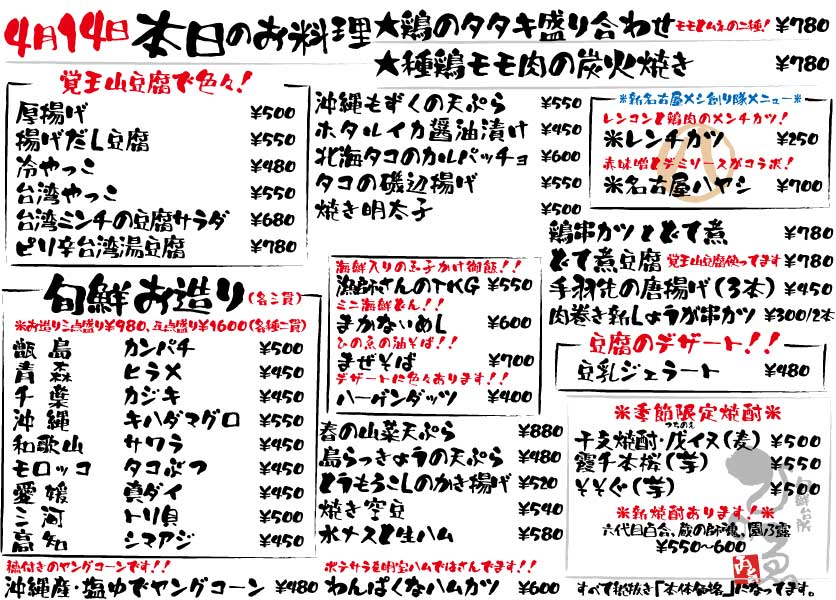 4月14日 本日のお料理
★鶏のタタキ盛り合わせ モモとムネの二種! ¥780
★種鶏モモ肉の炭火焼き ¥780
覚王山豆腐で色々!
厚揚げ ¥500
揚げだし豆腐 ¥550
冷やっこ ¥480
台湾やっこ ¥550
台湾ミンチの豆腐サラダ ¥680
ピリ辛台湾湯豆腐 ¥780
旬鮮お造り(名三貫)
※お造り三点盛り¥980、五点盛り¥1600(名種二貫)
甑島 カンパチ ¥500
青森 ヒラメ ¥450
千葉 カジキ ¥450
沖縄 キハダマグロ ¥550
和歌山 サワラ ¥450
モロッコ タコぶつ ¥450
愛媛 真ダイ ¥450
三河 トリ貝 ¥500
高知 シマアジ ¥450
穂付きのヤングコーンです!
沖縄産・塩ゆでヤングコーン ¥480
沖縄もずくの天ぷら ¥550
ホタルイカ醤油漬け ¥450
北海タコのカルパッチョ ¥600
タコの磯辺揚げ ¥550
焼き明太子 ¥500
海鮮入りの玉子かけ御飯!!
漁師さんのTKG ¥550
ミニ海鮮どん!!
まかないめし ¥600
ひの魚の油そば!!
まぜそば ¥700
デザートに色々あります!!
ハーゲンダッツ ¥400
春の山菜天ぷら ¥880
島らっきょうの天ぷら ¥480
とうもろこしのかき揚げ ¥520
焼き空豆 ¥540
水ナスと生ハム ¥580
ポテサラを明宝ハムではさんでます!!
わんぱくなハムカツ ¥600
※新名古屋メシ創り隊メニュー※
レンコンと鶏肉のメンチカツ!
※レンチカツ ¥250
赤味噌とデミソースがコラボ!
※名古屋ハヤシ ¥700
鶏串カツとどて煮 ¥780
どて煮豆腐 覚王山豆腐使ってます ¥780
手羽先の唐揚げ(3本) ¥450
肉巻き新しょうが串カツ ¥300/2本
豆腐のデザート!!
豆乳ジェラート ¥480
※季節限定焼酎※
つちのえ
干支焼酎・戊イヌ(麦) ¥500
霞千本桜(芋) ¥550
そそぐ(芋) ¥500
※新焼酎あります!※
六代目百合、蔵の師魂、園乃露
¥550~600
旬鮮台所
すべて税抜き「本体価格」になってます。